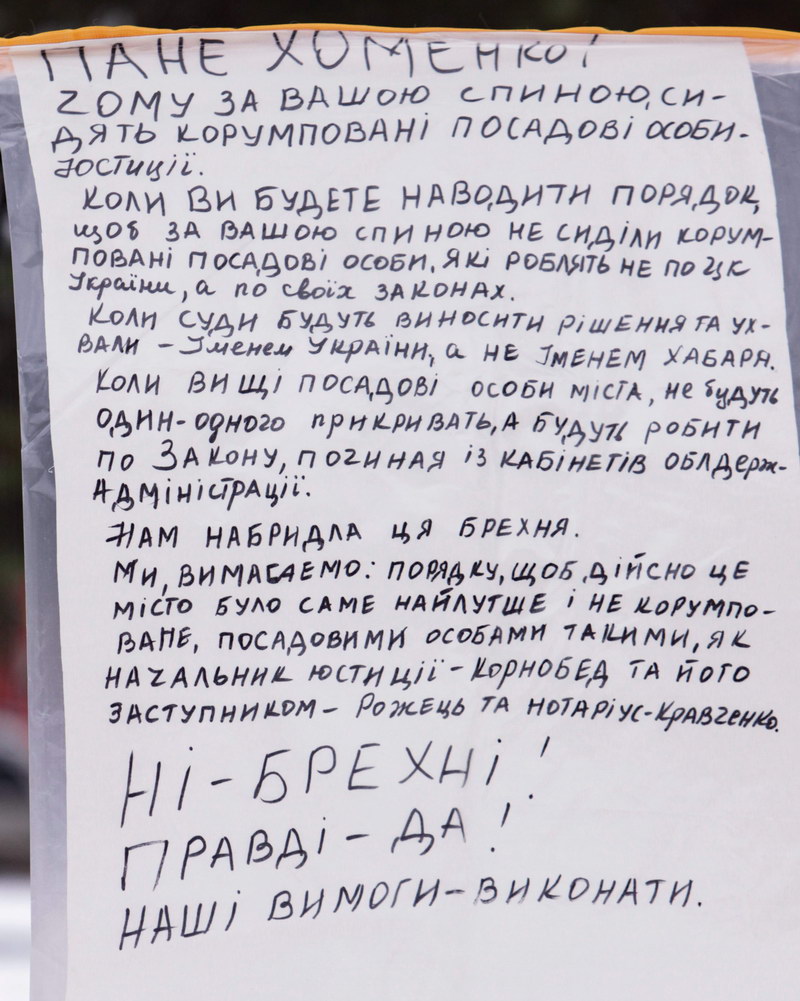 ПАНЕ ХОМЕНКО!
ЧОМУ ЗА ВАШОЮ СПИНОЮ, СИ-
ДЯТЬ КОРУМПОВАНІ ПОСАДОВІ ОСОБИ-
ЮСТИЦІЇ.
КОЛИ ВИ БУДЕТЕ НАВОДИТИ ПОРЯДОК,
ЩОБ ЗА ВАШОЮ СПИНОЮ НЕ СИДІЛИ КОРУМ-
ПОВАНІ ПОСАДОВІ ОСОБИ, ЯКІ РОБЛЯТЬ НЕ ПО ЦК
України, а по своїх ЗАКОНАХ.
КОЛИ СУДИ БУДУТЬ ВИНОСИТИ РІШЕННЯ ТА УХ-
ВАЛИ - Іменем УКРАЇНИ, а НЕ ІМЕНЕМ ХАБАРЯ.
КОЛИ ВИЩІ ПОСАДОВІ ОСОБИ МІСТА, не будуть
ОДИН-одного ПРИКРИВАТЬ, А БУДУТЬ РОБИТИ
ПО ЗАКОНУ, ПОЧИНАЯ ІЗ КАБІНЕТІВ ОБЛДЕРЖ-
АДМІНІСТРАЦІЇ.
НАМ НАБРИДЛА ЦЯ БРЕХНЯ.
МИ, ВИМАГАЕМО: ПОРЯДКУ, ЩОБ ДІЙСНО ЦЕ
МІСТО БУЛО САМЕ НАЙЛУТШЕ І НЕ КОРУМПО-
ВАНЕ, ПОСАДОВИМИ ОСОБАМИ ТАКИМИ, ЯК
НАЧАЛЬНИК ЮСТИЦІЇ - КОРНОБЕД ТА ЙОГО
ЗАСТУПНИКОМ - РОЖЕЦЬ ТА НОТАРІУС-КРАВЧЕНКО.
НІ - БРЕХНІ!
ПРАВДІ - ДА!
НАШІ ВИМОГИ - ВИКОНАТИ.